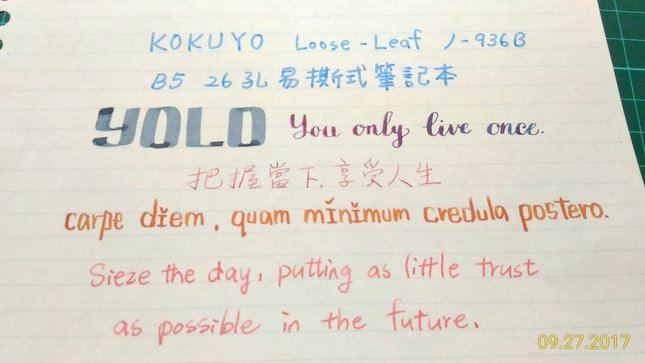 KOKUYO Loose-Leaf ノ-936B
B5 26孔易撕式筆記本
YOLO You only live once.
把握當下,享受人生
carpe diem, quam mínimum credula postero.
Sieze the day, putting as little trust
as possible in the future.
09.27.2017